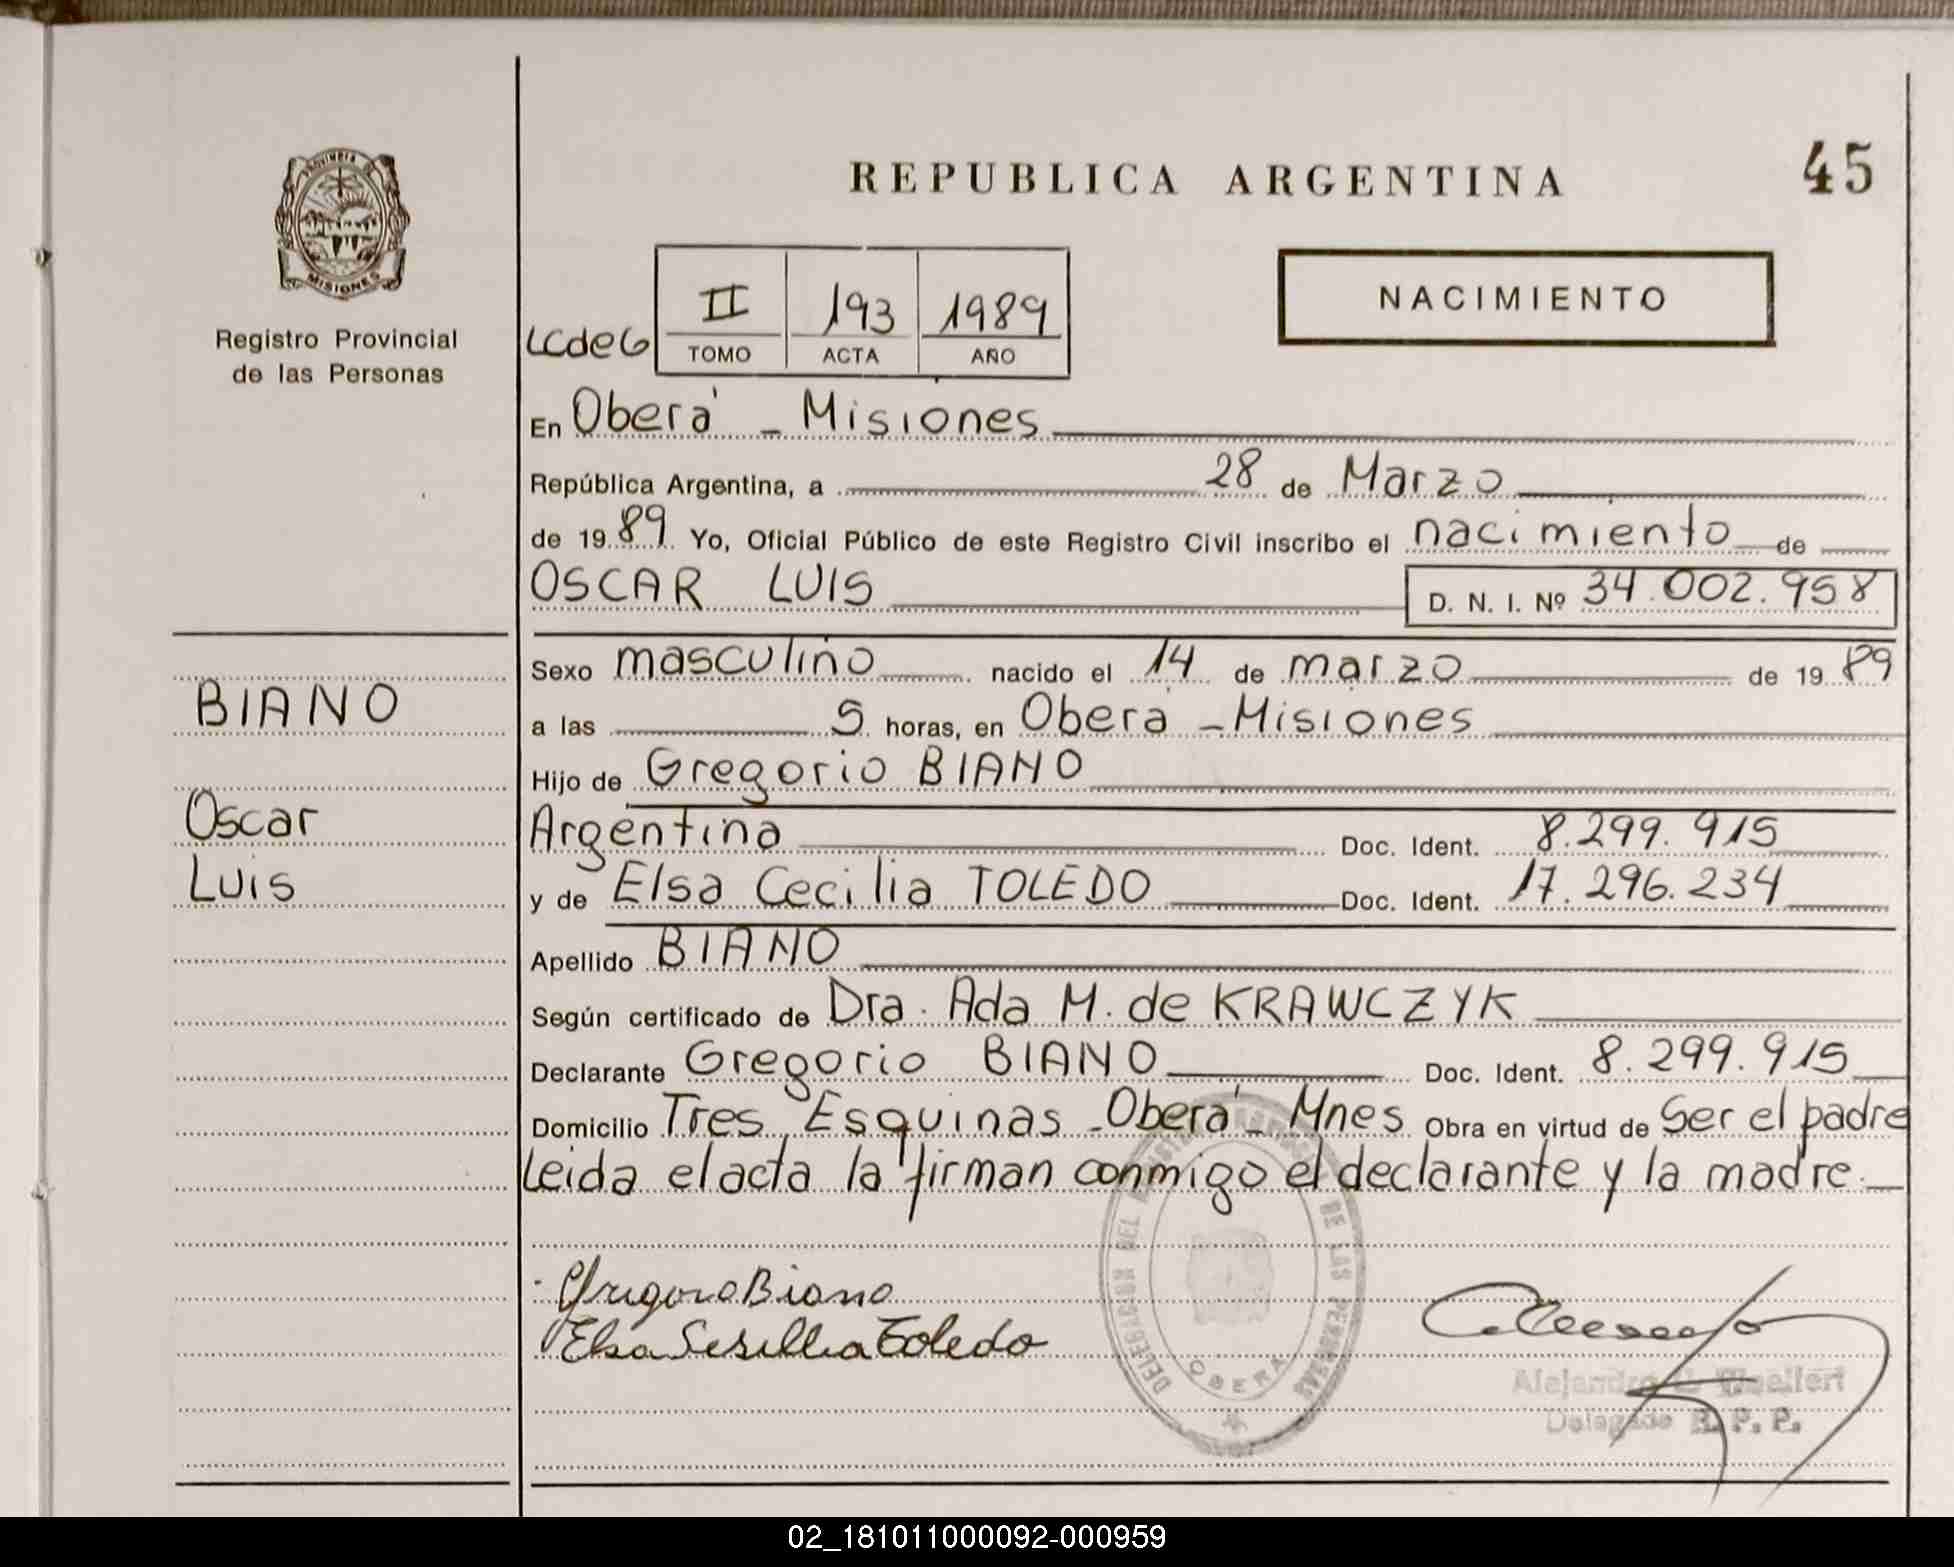 REPUBLICA ARGENTINA
45
PROVINCIA
MISIONES
Registro Provincial
de las Personas
NACIMIENTO
LCdeG
II 193 1989
TOMO ACTA AÑO
En Oberá - Misiones
República Argentina, a 28 de Marzo
de 1989 Yo, Oficial Público de este Registro Civil inscribo el nacimiento de
OSCAR LUIS D. N. I. Nº 34.002.958
Sexo masculino nacido el 14 de marzo de 1989
BIANO
a las 5 horas, en Obera - Misiones
Hijo de Gregorio BIANO
Oscar
Argentina Doc. Ident. 8.299.915
Luis
y de Elsa Cecilia TOLEDO Doc. Ident. 17.296.234
Apellido BIANO
Según certificado de Dra. Ada M. de KRAWCZYK
Declarante Gregorio BIANO Doc. Ident. 8.299.915
Domicilio Tres Esquinas - Oberá - Mnes Obra en virtud de Ser el padre
Leida el acta la firman conmigo el declarante y la madre.
Gregorio Biano
Elsa Sesillia Toledo
DELEGACION DEL DE LAS PERSONAS
OBERA
Alejandro
Delegado R. P. P.
02_181011000092-000959